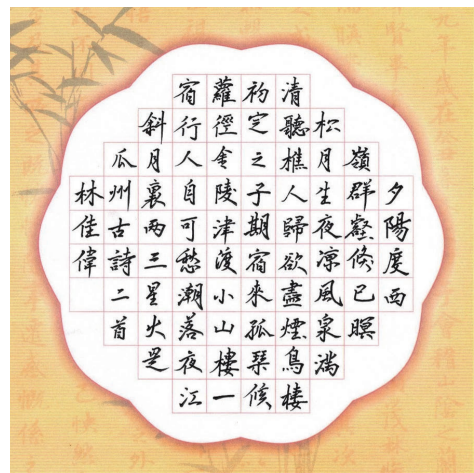 夕陽度西
嶺群壑倏已暝
松月生夜凉風泉滿
清聽樵人歸欲盡煙鳥棲
初定之子期宿來孤琴候
蘿徑金陵津渡小山樓一
宿行人自可愁潮落夜江
斜月裏兩三星火是
瓜州古詩二首
林佳偉